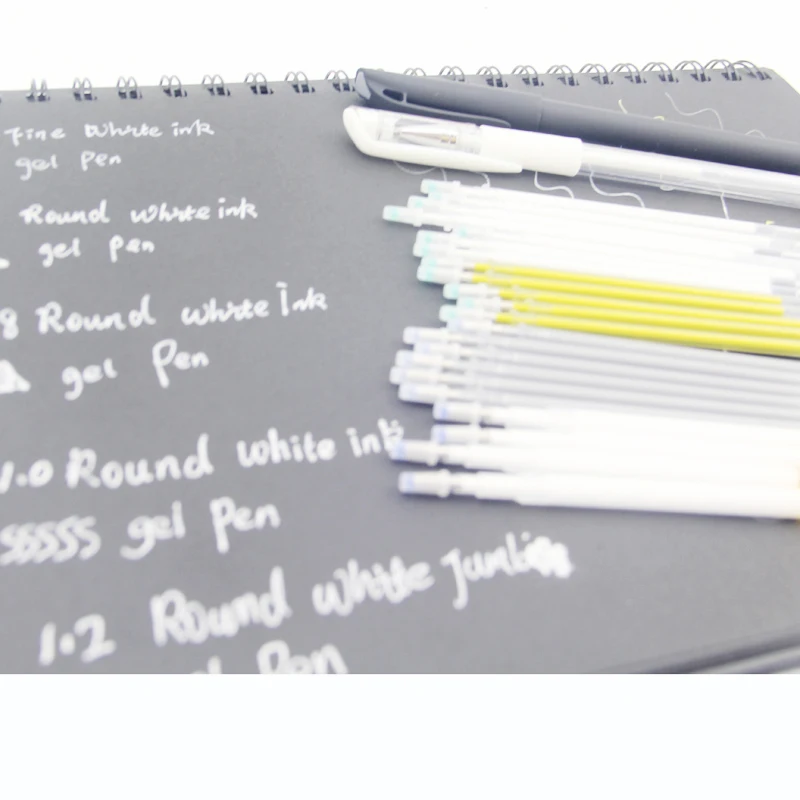 Fine white ink
gel Pen
Round white ink
gel Pen
8 Round white Ink
gel Pen
1.0 Round white ink
SSSSS gel Pen
1.2 Round white
Pen